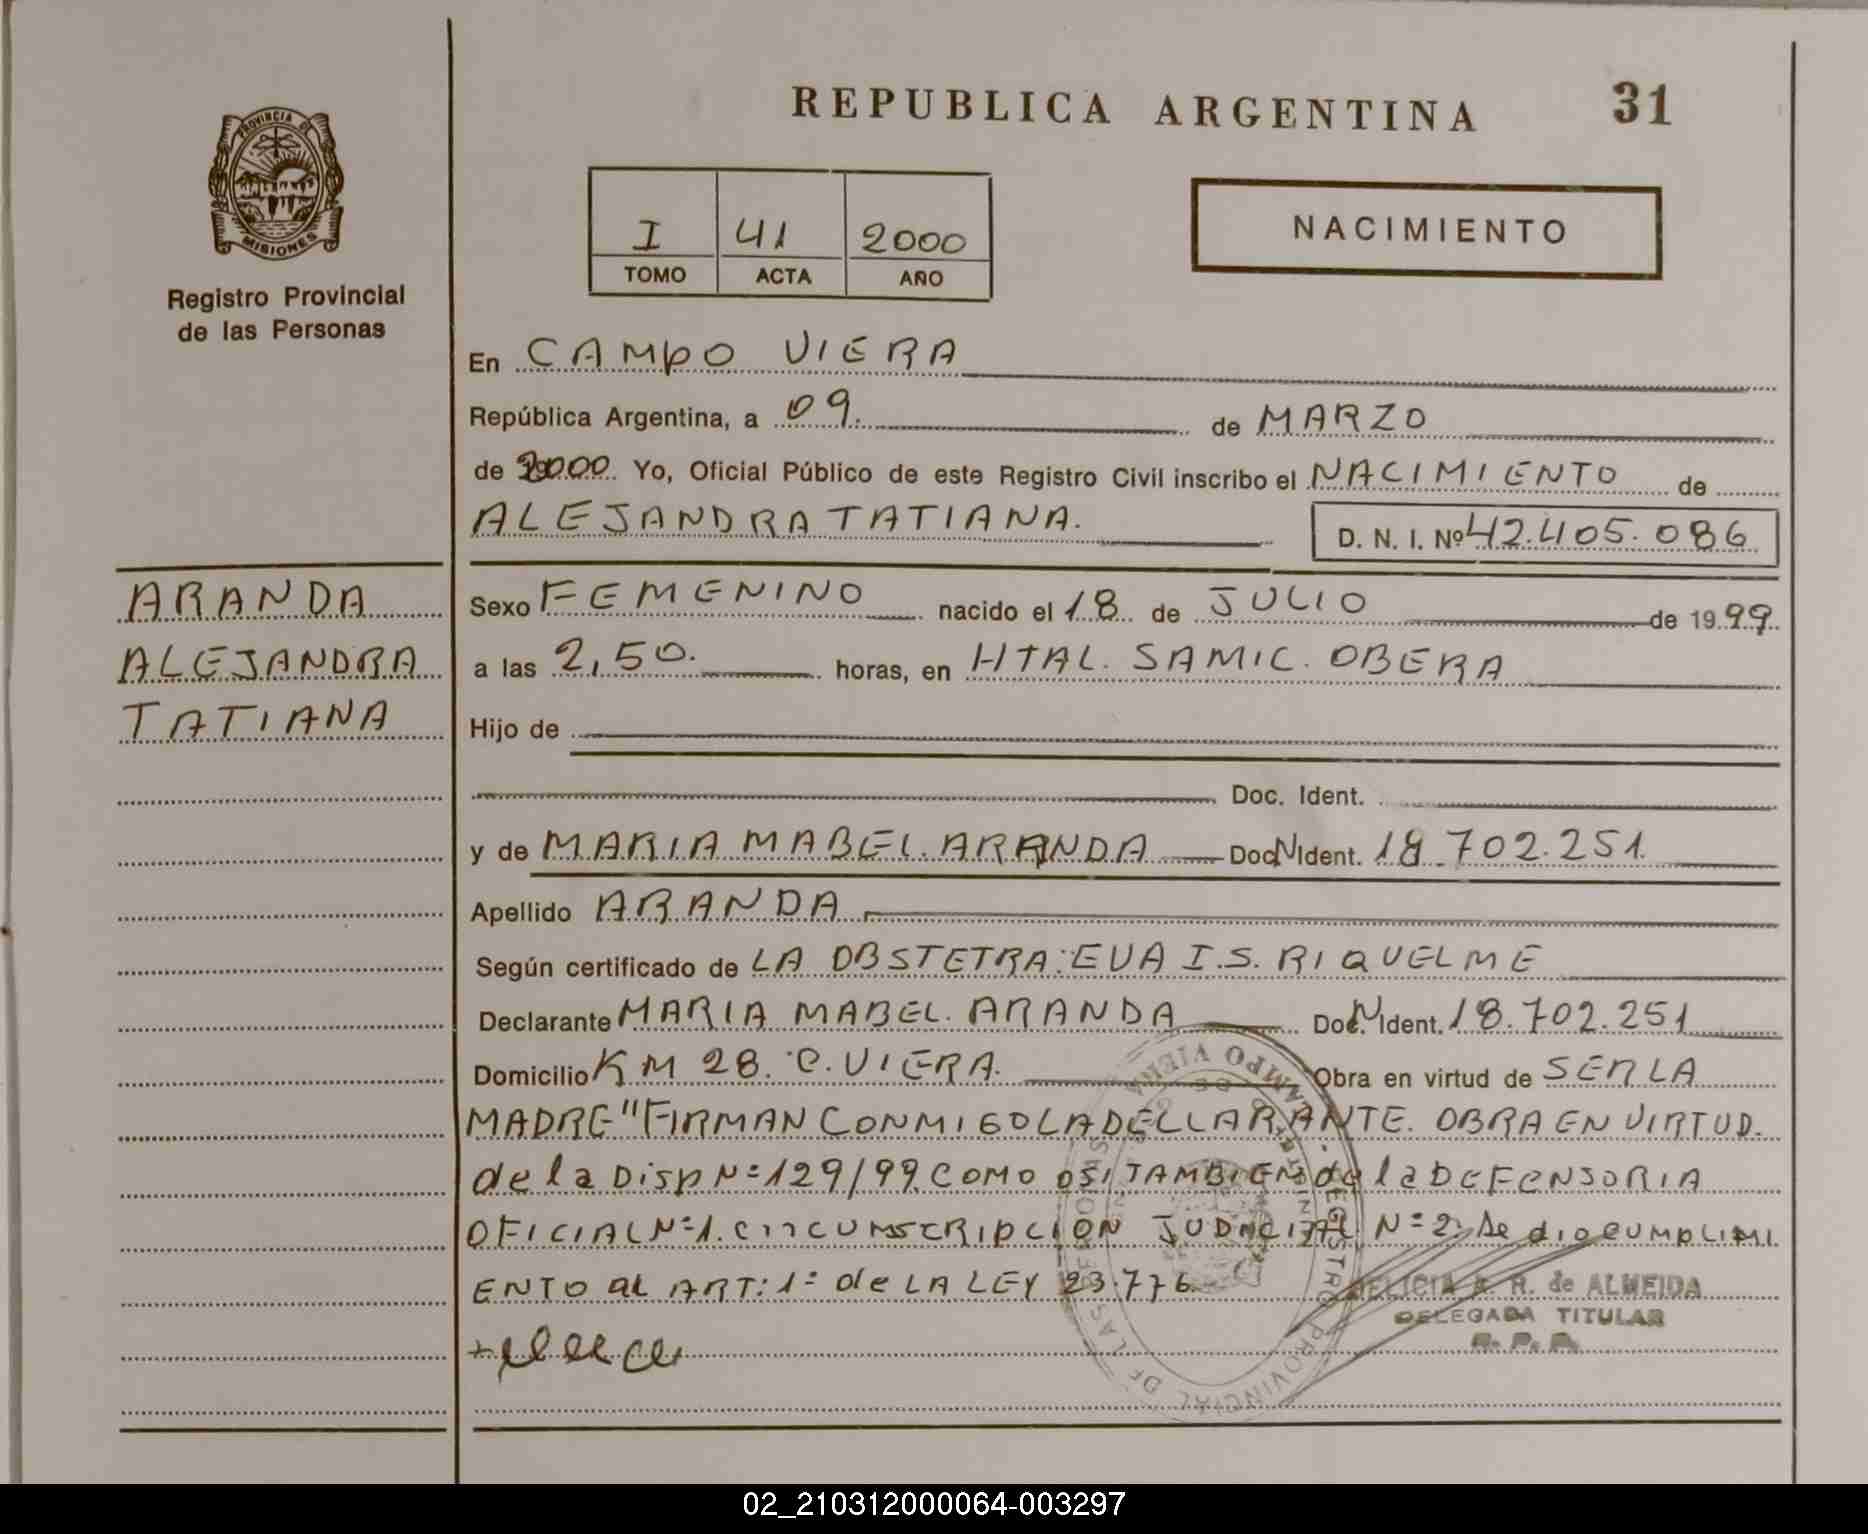 REPUBLICA ARGENTINA 31
PROVINCIA DE
MISIONES
Registro Provincial
de las Personas
I 41 2000
TOMO ACTA AÑO
NACIMIENTO
En CAMPO VIERA
República Argentina, a 09. de MARZO
de 2000. Yo, Oficial Público de este Registro Civil inscribo el NACIMIENTO de
ALEJANDRA TATIANA. D. N. I. Nº 42.405.086
ARANDA
ALEJANDRA
TATIANA
Sexo FEMENINO nacido el 18 de JULIO de 1999.
a las 2,50. horas, en HTAL. SAMIC. OBERA
Hijo de
Doc. Ident.
y de MARIA MABEL. ARANDA Doc. N Ident. 18.702.251.
Apellido ARANDA
Según certificado de LA OBSTETRA: EVA I.S. RIQUELME
Declarante MARIA MABEL. ARANDA Doc. N Ident. 18.702.251
Domicilio KM 28. C. VIERA. Obra en virtud de SER LA
MADRE "FIRMAN CONMIGO LA DECLARANTE. OBRA EN VIRTUD.
de la DISP Nº 129/99. COMO OSI TAMBIEN de la DEFENSORIA
OFICIAL Nº 1. CIRCUMSCRIPCION JUDICIAL Nº 2. Se dio CUMPLIMI
ENTO al ART: 1º de LA LEY 23.776.
REGISTRO PROVINCIAL DE LAS PERSONAS
CAMPO VIERA
R. de ALMEIDA
DELEGADA TITULAR
R. P. P.
02_210312000064-003297